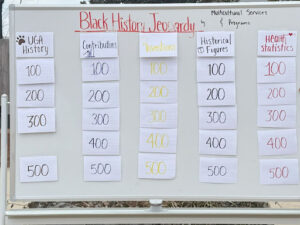 Multicultural Services
& Programs
Black History Jeopardy
UGA
History
Contributions
Historical
Figures
Health
Statistics
100 100 100 100 100
200 200 200 200 200
300 300 300 300 300
400 400 400 400
500 500 500 500 500